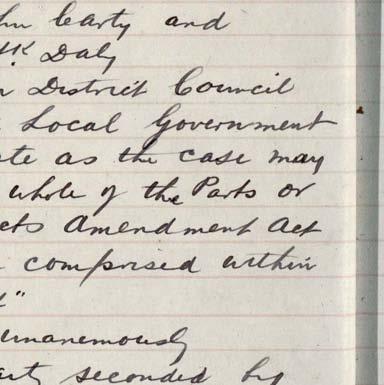 hn Carty and
k Daly
n District Council
Local Government
te as the case may
whole of the Parts or
cts Amendment Act
comprised within
"
unanemously
arty seconded by